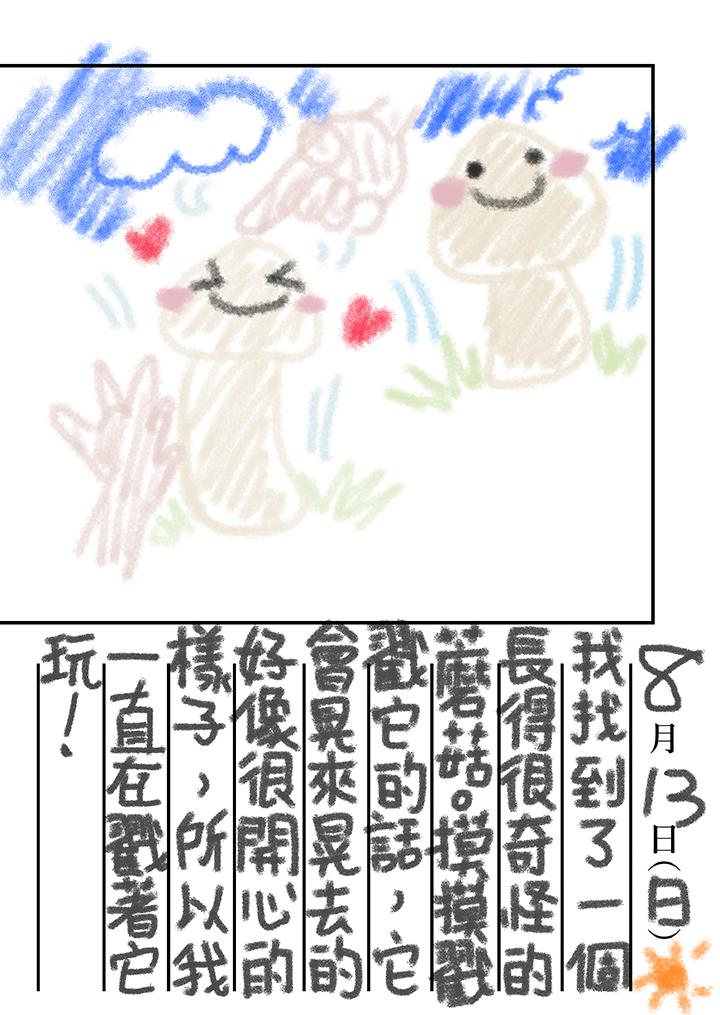 8月13日(日)
我找到了一個
長得很奇怪的
蘑菇。摸摸戳
戳它的話，它
會晃來晃去的
好像很開心的
樣子，所以我
一直在戳著它
玩！